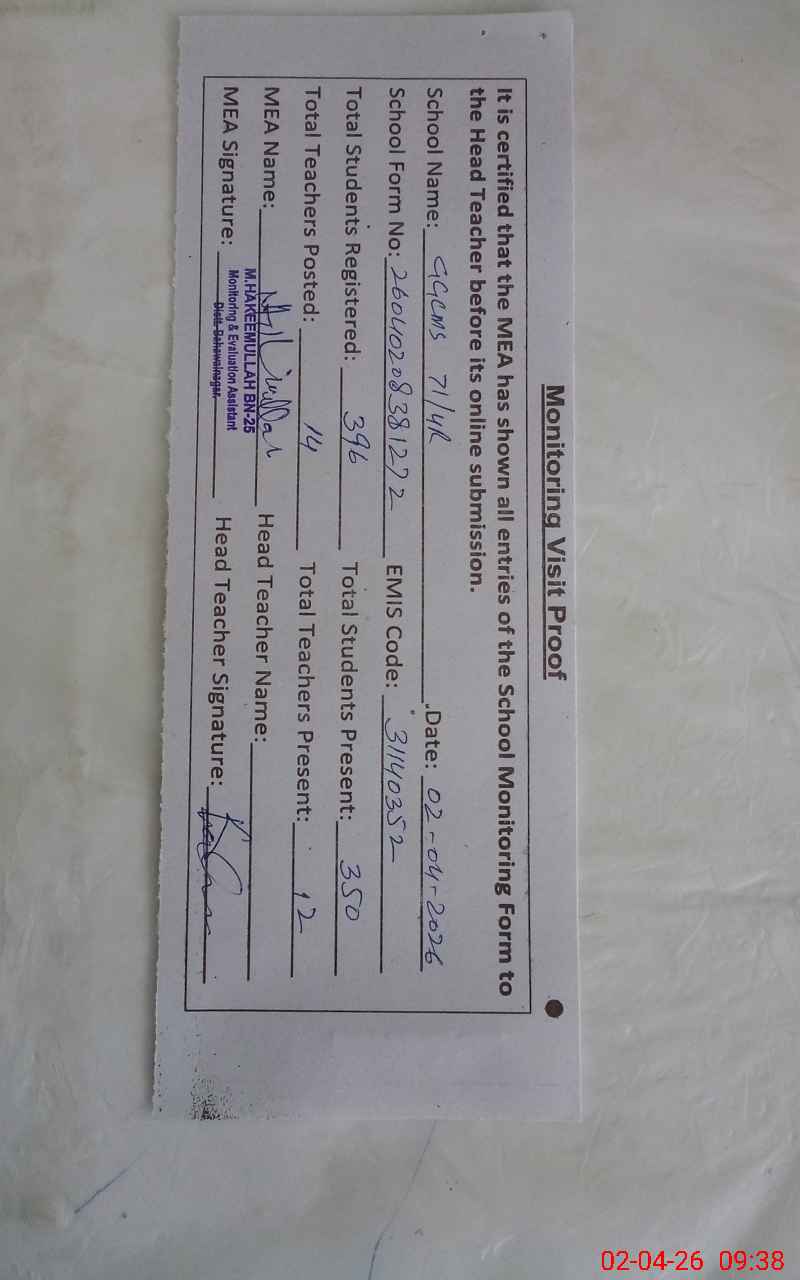 Monitoring Visit Proof
It is certified that the MEA has shown all entries of the School Monitoring Form to
the Head Teacher before its online submission.
School Name: GGCMS 71/4R Date: 02-04-2026
School Form No: 26040208381272 EMIS Code: 31140352
Total Students Registered: 396 Total Students Present: 350
Total Teachers Posted: 14 Total Teachers Present: 12
MEA Name: Head Teacher Name:
M.HAKEEMULLAH BN-25
Monitoring & Evaluation Assistant
Distt. Bahawalnagar.
MEA Signature: Head Teacher Signature:
02-04-26 09:38